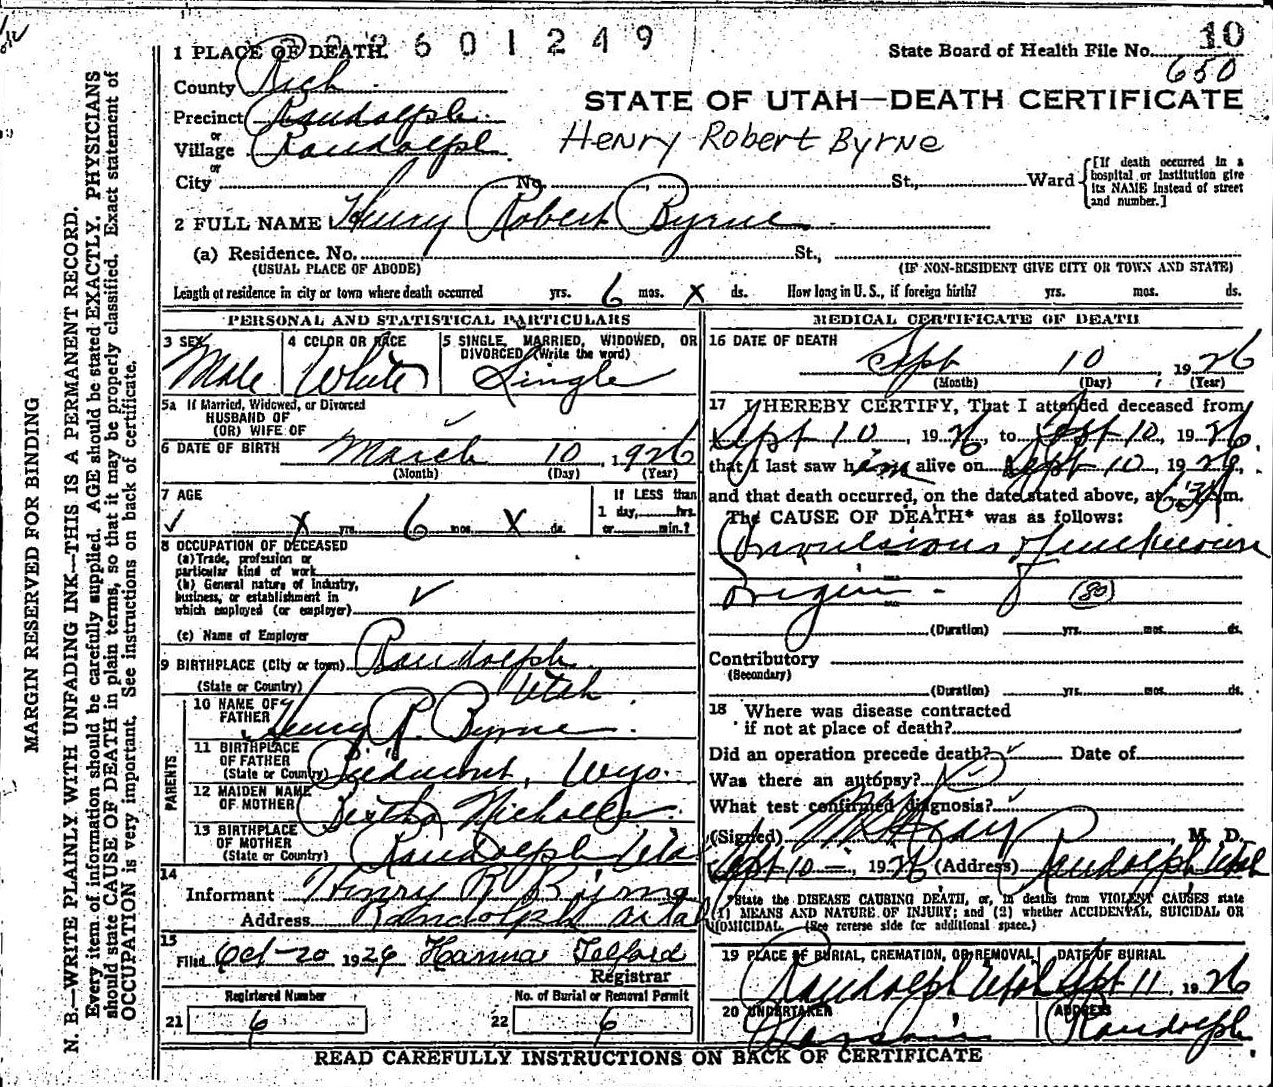 2601249
10
1 PLACE OF DEATH
State Board of Health File No. 650
County Rich
STATE OF UTAH—DEATH CERTIFICATE
Precinct Randolph
or
Village Randolph
Henry Robert Byrne
or
City No. St., Ward
[If death occurred in a hospital or institution give its NAME instead of street and number.]
2 FULL NAME Henry Robert Byrne
(a) Residence. No. St.,
(USUAL PLACE OF ABODE) (IF NON-RESIDENT GIVE CITY OR TOWN AND STATE)
Length of residence in city or town where death occurred yrs. 6 mos. X ds. How long in U. S., if foreign birth? yrs. mos. ds.
PERSONAL AND STATISTICAL PARTICULARS
3 SEX 4 COLOR OR RACE 5 SINGLE, MARRIED, WIDOWED, OR DIVORCED (Write the word)
Male White Single
5a If Married, Widowed, or Divorced
HUSBAND OF
(OR) WIFE OF
6 DATE OF BIRTH March 10, 1926
(Month) (Day) (Year)
7 AGE
X yrs. 6 mos. X ds.
If LESS than
1 day, hrs.
or min.?
8 OCCUPATION OF DECEASED
(a) Trade, profession or
particular kind of work
(b) General nature of Industry,
business, or establishment in
which employed (or employer)
(c) Name of Employer
9 BIRTHPLACE (City or town) Randolph
(State or Country) Utah
PARENTS
10 NAME OF FATHER Henry R. Byrne
11 BIRTHPLACE OF FATHER
(State or Country) Piedmont, Wyo.
12 MAIDEN NAME OF MOTHER Bertha Nicholls
13 BIRTHPLACE OF MOTHER
(State or Country) Randolph Uta
14
Informant Henry R Byrne
Address Randolph Utah
15
Filed Oct-20 1926 Telford
Registrar
Registered Number No. of Burial or Removal Permit
21 6 22 6
MEDICAL CERTIFICATE OF DEATH
16 DATE OF DEATH
Sept 10, 1926
(Month) (Day) (Year)
17 I HEREBY CERTIFY, That I attended deceased from
Sept 10, 1926, to Sept 10, 1926
that I last saw him alive on Sept 10, 1926,
and that death occurred, on the date stated above, at m.
The CAUSE OF DEATH* was as follows:
Convulsions of unknown
Origin - (80)
(Duration) yrs. mos. ds.
Contributory
(Secondary)
(Duration) yrs. mos. ds.
18 Where was disease contracted
if not at place of death?
Did an operation precede death? Date of
Was there an autopsy?
What test confirmed diagnosis?
(Signed) M. D.
Sept 10, 1926 (Address) Randolph Utah
*State the DISEASE CAUSING DEATH, or, in deaths from VIOLENT CAUSES state
(1) MEANS AND NATURE OF INJURY; and (2) whether ACCIDENTAL, SUICIDAL OR
HOMICIDAL. (See reverse side for additional space.)
19 PLACE OF BURIAL, CREMATION, OR REMOVAL DATE OF BURIAL
Randolph Utah Sept 11, 1926
20 UNDERTAKER ADDRESS
Randolph
READ CAREFULLY INSTRUCTIONS ON BACK OF CERTIFICATE
MARGIN RESERVED FOR BINDING
N. B.—WRITE PLAINLY WITH UNFADING INK—THIS IS A PERMANENT RECORD.
Every item of information should be carefully supplied. AGE should be stated EXACTLY. PHYSICIANS
should state CAUSE OF DEATH in plain terms, so that it may be properly classified. Exact statement of
OCCUPATION is very important. See instructions on back of certificate.